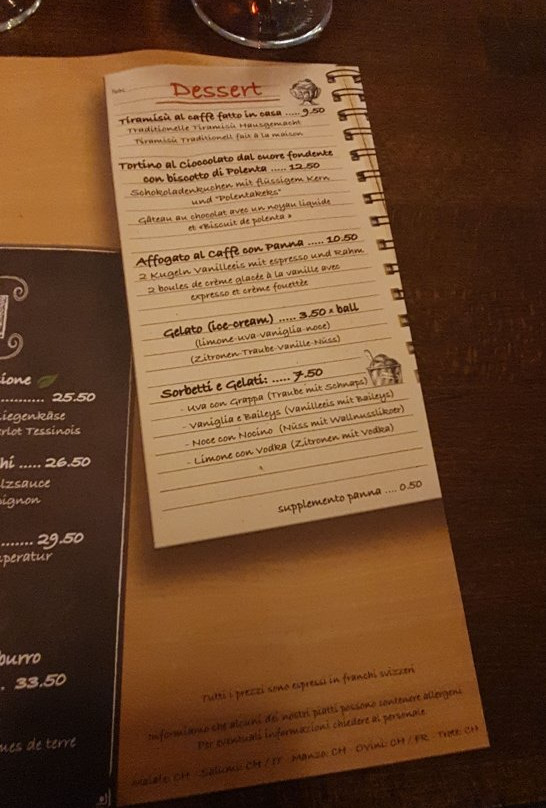 Dessert
Tiramisù al caffè fatto in casa ..... 9.50
Traditionelle Tiramisù Hausgemacht
Tiramisù Traditionell fait à la maison
Tortino al Cioccolato dal cuore fondente
con biscotto di Polenta ..... 12.50
Schokoladenkuchen mit flüssigem Kern
und "Polentakeks"
Gâteau au chocolat avec un noyau liquide
et «Biscuit de polenta »
Affogato al Caffè con Panna ..... 10.50
2 Kugeln Vanilleeis mit espresso und Rahm
2 boules de crème glacée à la vanille avec
expresso et crème fouettée
Gelato (ice-cream) ..... 3.50 x ball
(limone-uva-vaniglia-noce)
(Zitronen-Traube-Vanille-Nüss)
Sorbetti e Gelati: ..... 7.50
- Uva con Grappa (Traube mit Schnaps)
- Vaniglia e Baileys (Vanilleeis mit Baileys)
- Noce con Nocino (Nüss mit Wallnusslikoer)
- Limone con Vodka (Zitronen mit Vodka)
supplemento panna .... 0.50
ione
........... 25.50
iegenkäse
rlot Tessinois
hi ..... 26.50
lzsauce
pignon
........ 29.50
peratur
burro
. 33.50
mes de terre
Tutti i prezzi sono espressi in franchi svizzeri
Informiamo che alcuni dei nostri piatti possono contenere allergeni
Per eventuali informazioni chiedere al personale
Maiale: CH - Salumi: CH / IT - Manzo: CH - Ovini: CH / FR - Trote: CH